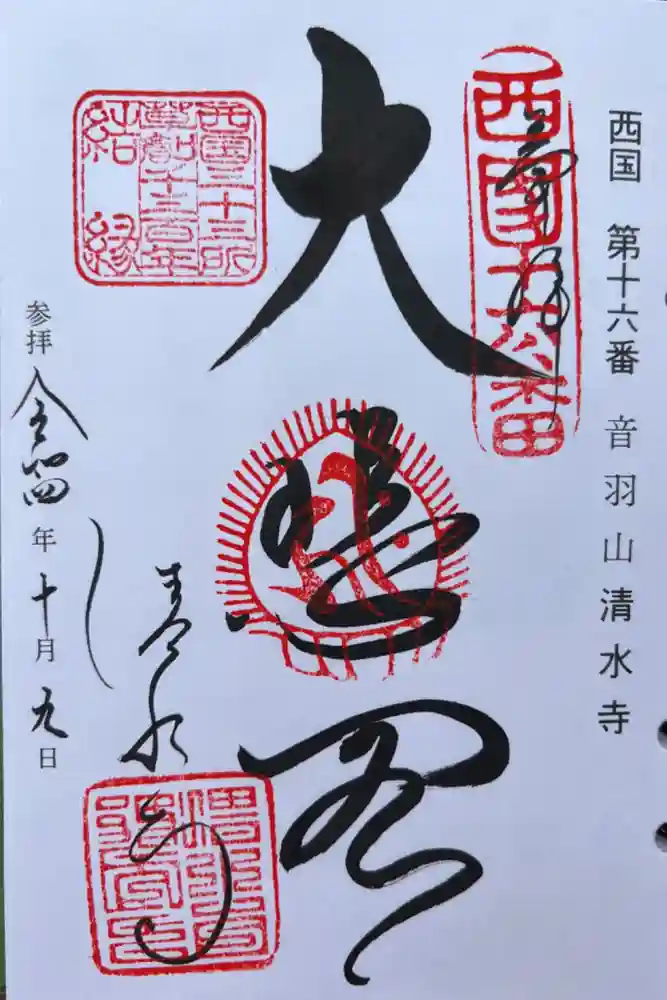 西国 第十六番 音羽山清水寺
奉拝
西国十六番
大悲閣
西国三十三所
草創千三百年
結縁
清水寺
参拝 令和四年十月九日